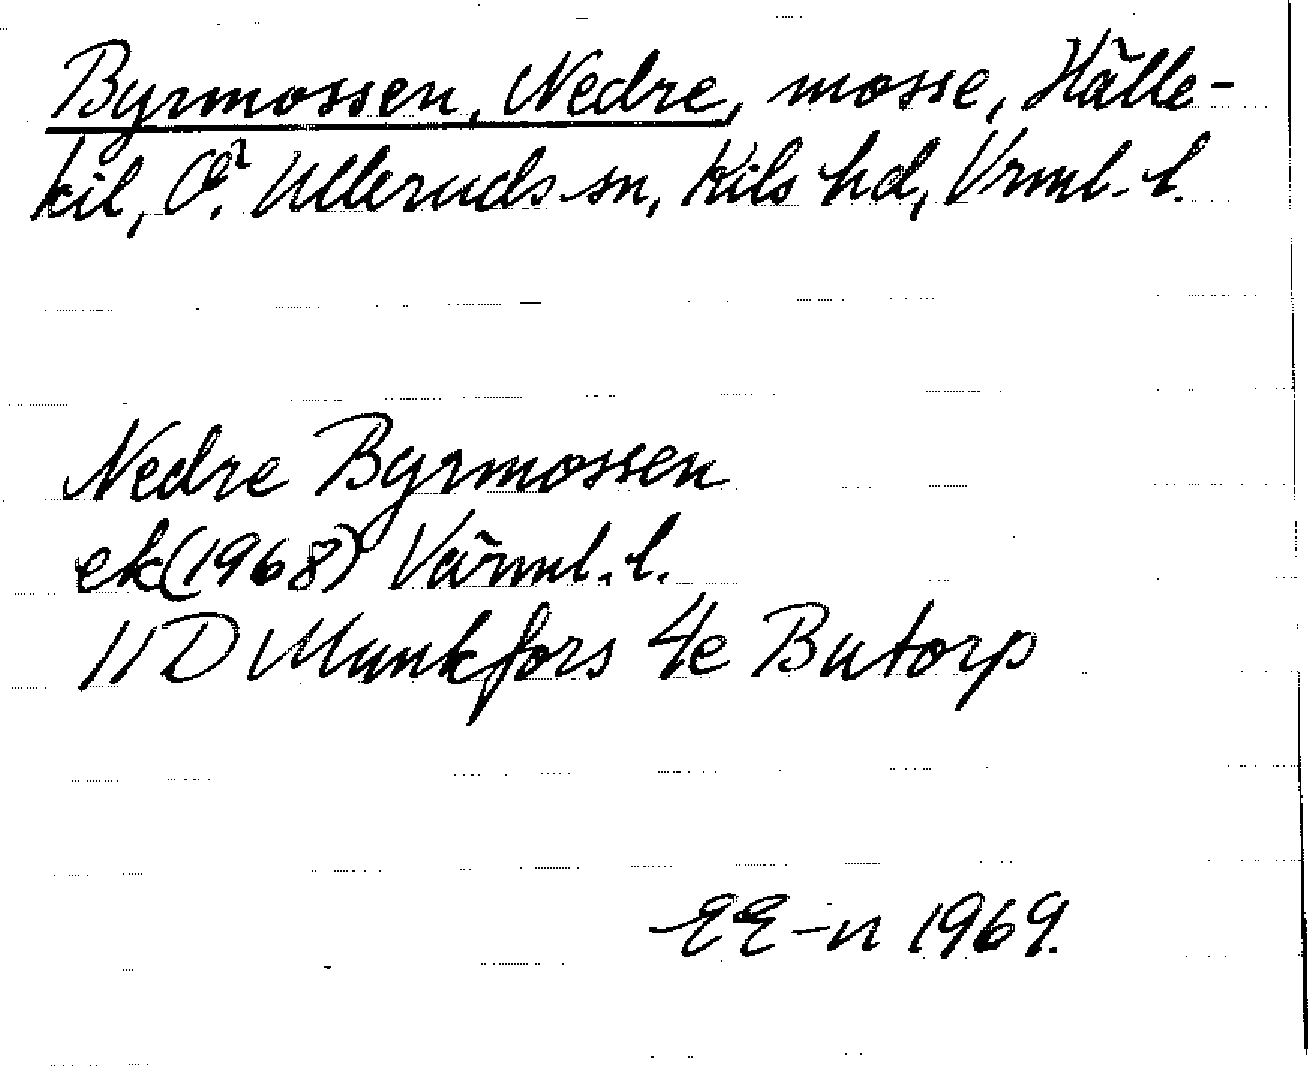 Byrmossen, Nedre, mosse, Hälle-
kil, Ö. Ulleruds sn, Kils hd, Vrml. l.
Nedre Byrmossen
ek (1968) Värml. l.
11D Munkfors 4e Butorp
EE-n 1969.